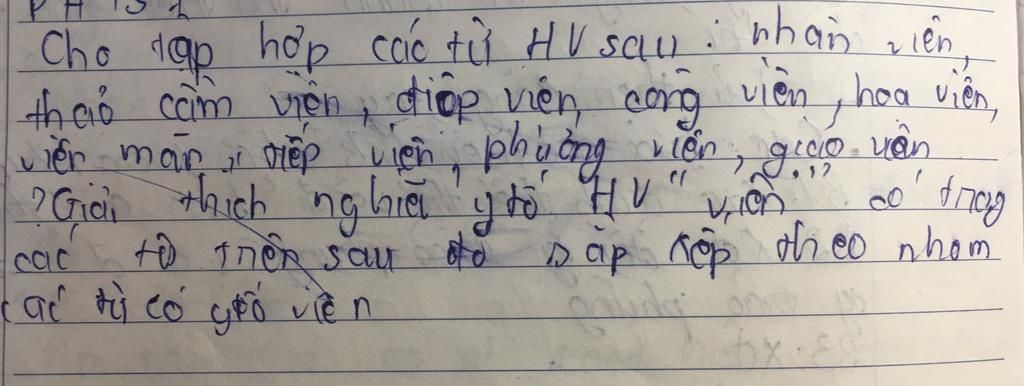 Cho tập hợp các từ HV sau: nhân viên,
thảo cầm viên, điệp viên, công viên, hoa viên,
viên mãn, tiếp viên, phương viên, giáo viên
? Giải thích nghĩa ytố HV "viên" có trog
các từ trên sau đó sắp xếp theo nhóm
các từ có ytố viên